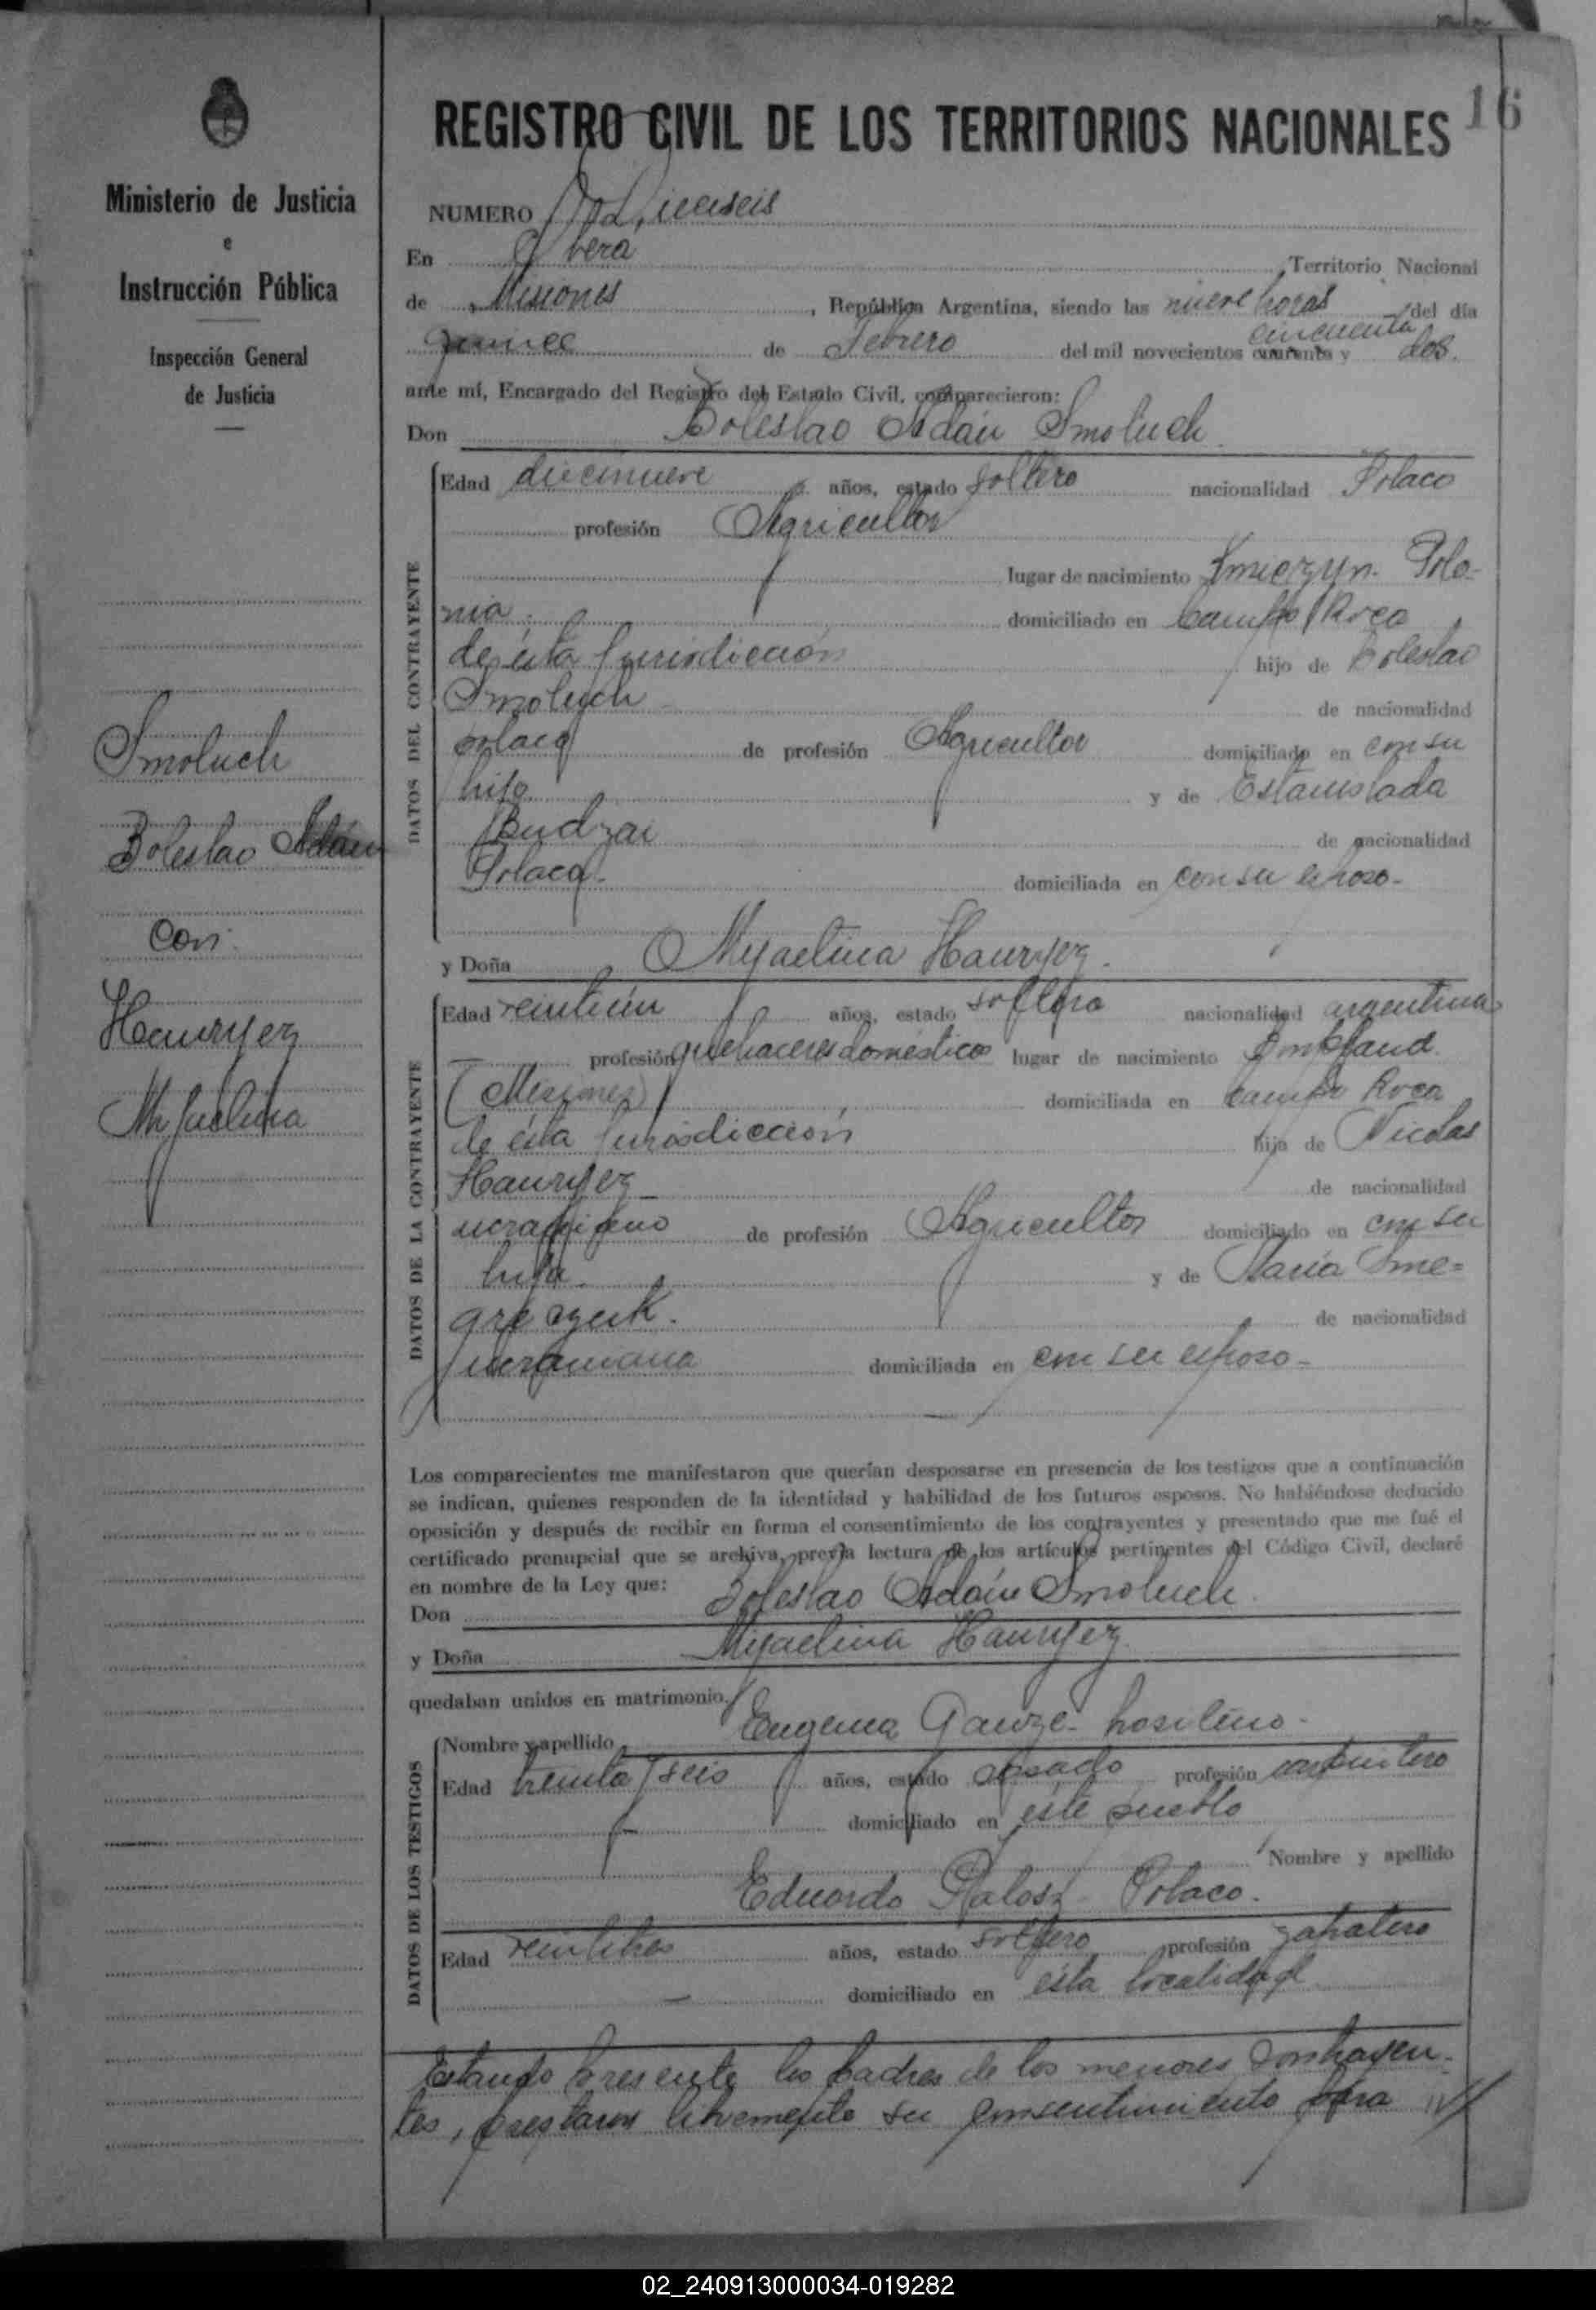 16
Ministerio de Justicia
e
Instrucción Pública
Inspección General
de Justicia
Smoluch
Boleslao Adán
con
Hauryez
Myaelina
REGISTRO CIVIL DE LOS TERRITORIOS NACIONALES
NUMERO Dieciseis
En Obera Territorio Nacional
de Misiones, República Argentina, siendo las nueve horas del día
quince de Febrero del mil novecientos cuarenta y cincuenta dos.
ante mí, Encargado del Registro del Estado Civil, comparecieron:
Don Boleslao Adán Smoluch
DATOS DEL CONTRAYENTE
Edad diecinueve años, estado soltero nacionalidad Polaco
profesión Agricultor
lugar de nacimiento Polo-
nia. domiciliado en Campo Roca
de ésta Jurisdicción hijo de Boleslao
Smoluch de nacionalidad
polaco de profesión Agricultor domiciliado en con su
hijo y de Estanislada
Budzai de nacionalidad
Polaca. domiciliada en con su esposo-
y Doña Myaelina Hauryez.
DATOS DE LA CONTRAYENTE
Edad veintiún años, estado soltera nacionalidad argentina
profesión quehaceres domésticos lugar de nacimiento
(Misiones) domiciliada en Campo Roca
de ésta Jurisdicción hija de Nicolas
Hauryez de nacionalidad
de profesión Agricultor domiciliado en con su
hija. y de María Sme=
greczuk. de nacionalidad
ucraniana domiciliada en con su esposo-
Los comparecientes me manifestaron que querían desposarse en presencia de los testigos que a continuación
se indican, quienes responden de la identidad y habilidad de los futuros esposos. No habiéndose deducido
oposición y después de recibir en forma el consentimiento de los contrayentes y presentado que me fué el
certificado prenupcial que se archiva, previa lectura de los artículos pertinentes del Código Civil, declaré
en nombre de la Ley que:
Don Boleslao Adán Smoluch
y Doña Myaelina Hauryez
quedaban unidos en matrimonio.
DATOS DE LOS TESTIGOS
Nombre y apellido
Edad treinta y seis años, estado casado profesión carpintero
domiciliado en éste pueblo
Nombre y apellido
Eduardo Polaco.
Edad veintitres años, estado soltero profesión zapatero
domiciliado en ésta localidad
Estando presente los padres de los menores contrayen-
tes, prestaron libremente su consentimiento para
02_240913000034-019282